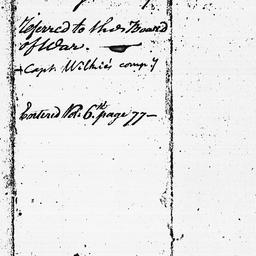 Referred to the Board
of War.
Capt. Wilkie's comp'y
Entered Vol. 6th page 77—